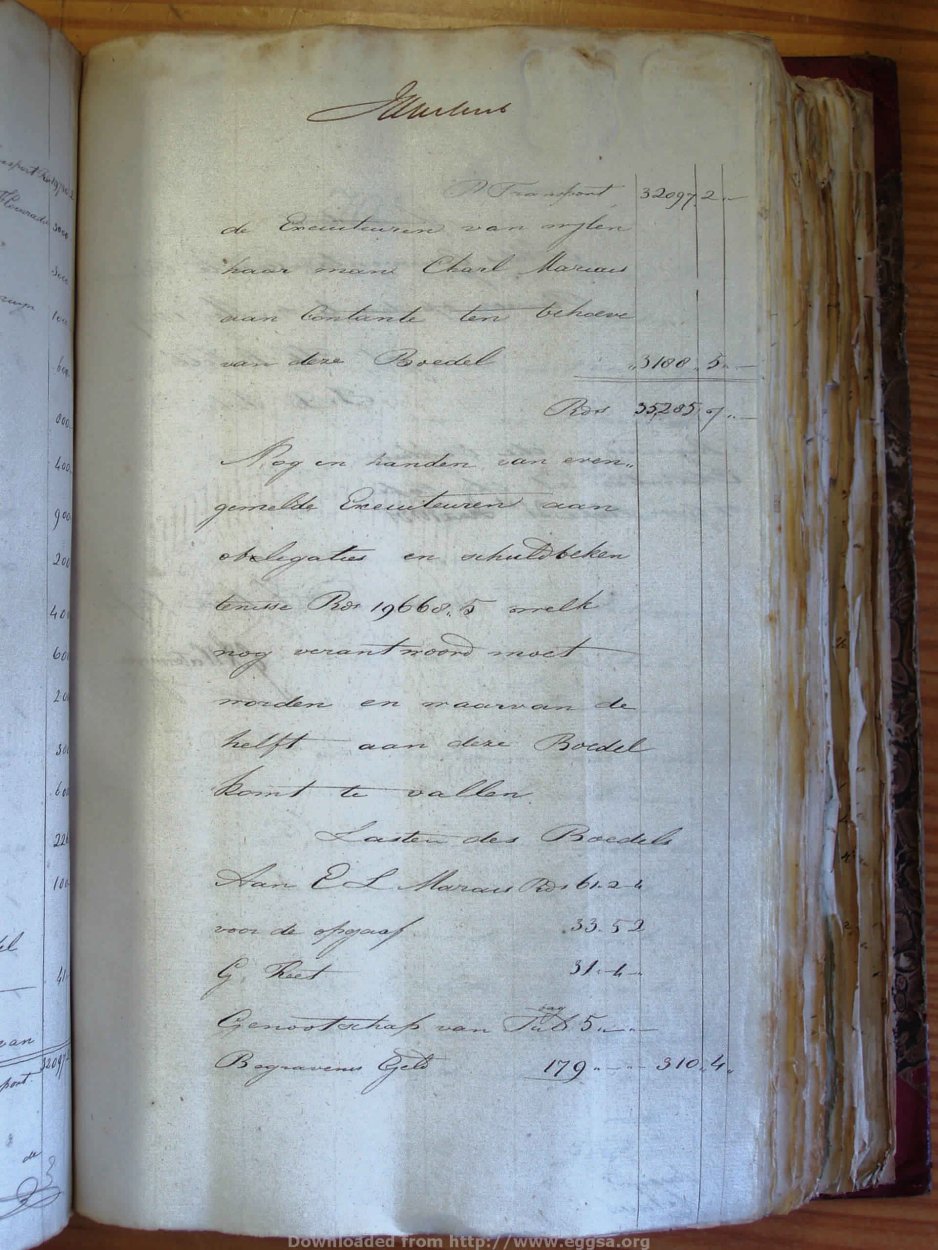 P. Transport 32097. 2 . —
de Executeuren van wylen
haar man Charl Marais
aan Contante ten behoeve
van deze Boedel 3188 . 5 . —
Rds 35285 . 7 . —
Nog in handen van even„
gemelde Executeuren aan
obligaties en schuldbeken
tenisse Rds 19668. 5 welk
nog verantwoord moet
worden en waarvan de
helft aan deze Boedel
komt te vallen
Lasten des Boedels
Aan E L Marais Rds 61. 2 4
voor de opgaaf 33. 5 2
G. 31. 4
Genootschap van 5. — —
Begravenis Geld 179. — — 310. 4.
de
Downloaded from http://www.eggsa.org